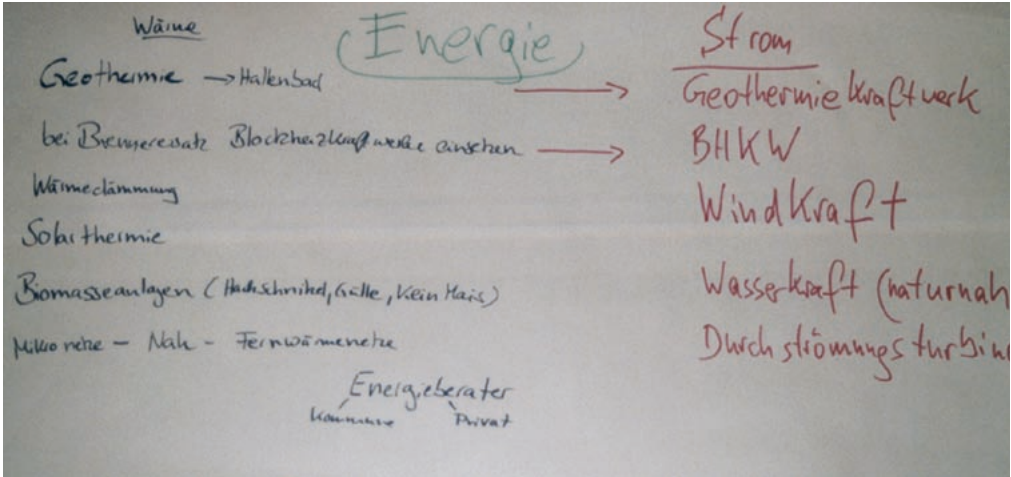 Energie
Wärme
Geothermie → Hallenbad
bei Brennerersatz Blockheizkraftwerke einsetzen
Wärmedämmung
Solarthermie
Biomasseanlagen (Hackschnitzel, Gülle, kein Mais)
Mikronetze - Nah - Fernwärmenetze
Energieberater
Kommune Privat
Strom
→ Geothermiekraftwerk
→ BHKW
Windkraft
Wasserkraft (naturnah
Durchströmungsturbine